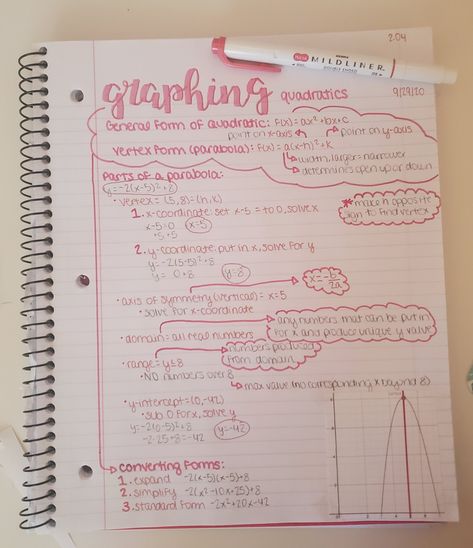 204
MILDLINER
graphing quadratics
9/29/20
General form of quadratic: f(x)=ax²+bx+c
point on x-axis point on y-axis
vertex form (parabola): f(x)=a(x-h)²+k
width, larger=narrower
determines open up or down
parts of a parabola:
y=-2(x-5)²+8
• vertex = (5,8)=(h,k)
1. x-coordinate: set x-5 = to 0, solve x
x-5=0 x=5
+5 +5
* make h opposite
sign to find vertex
2. y-coordinate: put in x, solve for y
y=-2(5-5)²+8
y= 0+8 y=8
• axis of symmetry (vertical) = x=5
x=-b/2a
• solve for x-coordinate
• domain = all real numbers
any numbers that can be put in
for x and produce unique y value
• range = y≤8
numbers produced
from domain
• NO numbers over 8
max value (no corresponding x beyond 8)
• y-intercept=(0,-42)
• sub 0 for x, solve y
y=-2(0-5)²+8
-2·25+8=-42 y=-42
converting forms:
1. expand -2(x-5)(x-5)+8
2. simplify -2(x²-10x+25)+8
3. standard form -2x²+20x-42